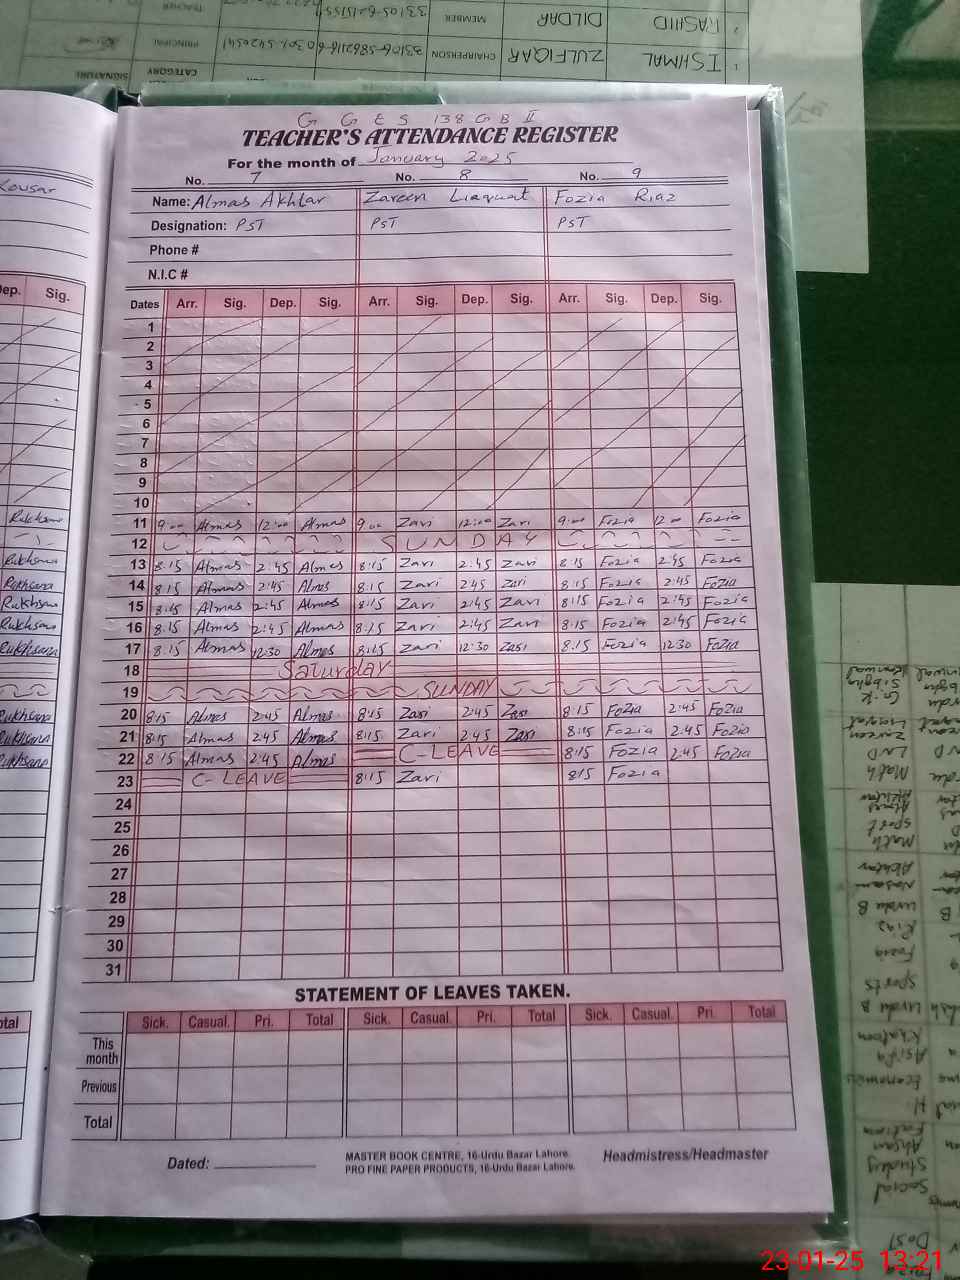 G G E S 138 G B II
TEACHER'S ATTENDANCE REGISTER
For the month of January 2025
No. 7 No. 8 No. 9
Name: Almas Akhtar Zareen Liaquat Fozia Riaz
Designation: PST PST PST
Phone #
N.I.C #
Dates Arr. Sig. Dep. Sig. Arr. Sig. Dep. Sig. Arr. Sig. Dep. Sig.
1
2
3
4
5
6
7
8
9
10
11 9:00 Almas 12:00 Almas 9:00 Zari 12:00 Zari 9:00 Fozia 12:00 Fozia
12 SUNDAY
13 8:15 Almas 2:45 Almas 8:15 Zari 2:45 Zari 8:15 Fozia 2:45 Fozia
14 8:15 Almas 2:45 Almas 8:15 Zari 2:45 Zari 8:15 Fozia 2:45 Fozia
15 8:15 Almas 2:45 Almas 8:15 Zari 2:45 Zari 8:15 Fozia 2:45 Fozia
16 8:15 Almas 2:45 Almas 8:15 Zari 2:45 Zari 8:15 Fozia 2:45 Fozia
17 8:15 Almas 12:30 Almas 8:15 Zari 12:30 Zari 8:15 Fozia 12:30 Fozia
18 Saturday
19 SUNDAY
20 8:15 Almas 2:45 Almas 8:15 Zari 2:45 Zari 8:15 Fozia 2:45 Fozia
21 8:15 Almas 2:45 Almas 8:15 Zari 2:45 Zari 8:15 Fozia 2:45 Fozia
22 8:15 Almas 2:45 Almas C-LEAVE 8:15 Fozia 2:45 Fozia
23 C-LEAVE 8:15 Zari 8:15 Fozia
24
25
26
27
28
29
30
31
STATEMENT OF LEAVES TAKEN.
Sick. Casual. Pri. Total Sick. Casual. Pri. Total Sick. Casual. Pri. Total
This month
Previous
Total
Dated:
MASTER BOOK CENTRE, 16-Urdu Bazar Lahore.
PRO FINE PAPER PRODUCTS, 16-Urdu Bazar Lahore.
Headmistress/Headmaster
Kousar
Dep. Sig.
Rukhsana
Rukhsana
Rukhsana
Rukhsana
Rukhsana
Rukhsana
Rukhsana
Rukhsana
Rukhsana
Total
SIGNATURE CATEGORY
1 ISHMAL ZULFIQAR CHAIRPERSON PRINCIPAL
2 RASHID DILDAR MEMBER TEACHER
23-01-25 13:21